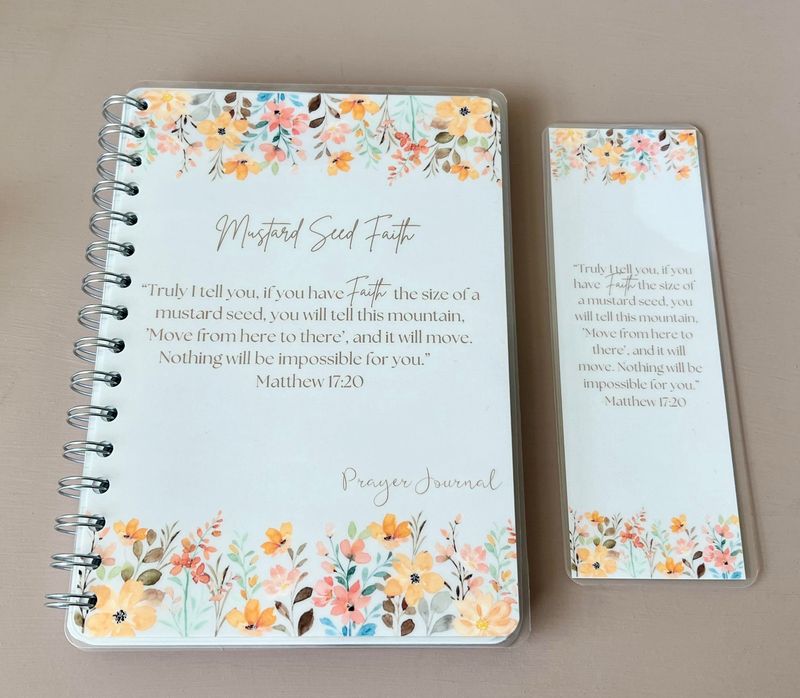 Mustard Seed Faith
“Truly I tell you, if you have Faith the size of a
mustard seed, you will tell this mountain,
’Move from here to there’, and it will move.
Nothing will be impossible for you.”
Matthew 17:20
Prayer Journal
“Truly I tell you, if you
have Faith the size of
a mustard seed, you
will tell this mountain,
’Move from here to
there’, and it will
move. Nothing will be
impossible for you.”
Matthew 17:20